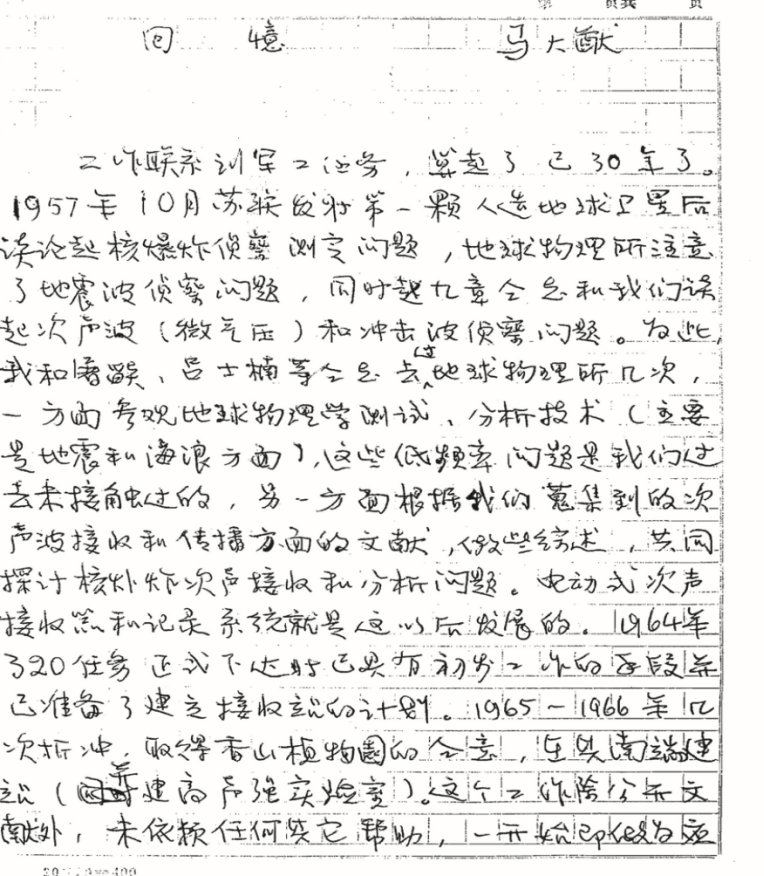 第 页共 页
回憶 马大猷
工作联系到军工任务，算起了已30年了。
1957年10月苏联发射第一颗人造地球卫星后
谈论起核爆炸侦察测定问题，地球物理所注意
了地震波侦察问题，同时赵九章仝志和我们谈
起次声波（微气压）和冲击波侦察问题。为此，
我和 、吕士楠等仝志去过地球物理所几次，
一方面参观地球物理学测试、分析技术（主要
是地震和海浪方面），这些低频率问题是我们过
去未接触过的，另一方面根据我们蒐集到的次
声波接收和传播方面的文献，做些综述，共同
探讨核外炸次声接收和分析问题。电动式次声
接收器和记录系统就是这以后发展的。1964年
320任务正式下达时已具有初步工作的手段并
已准备了建立接收站的计划。1965～1966年几
次折冲，取得香山植物園的仝意，在其南端建
站（并建高声强实验室）。这个工作除公开文
献外，未依赖任何其它帮助，一开始即做为